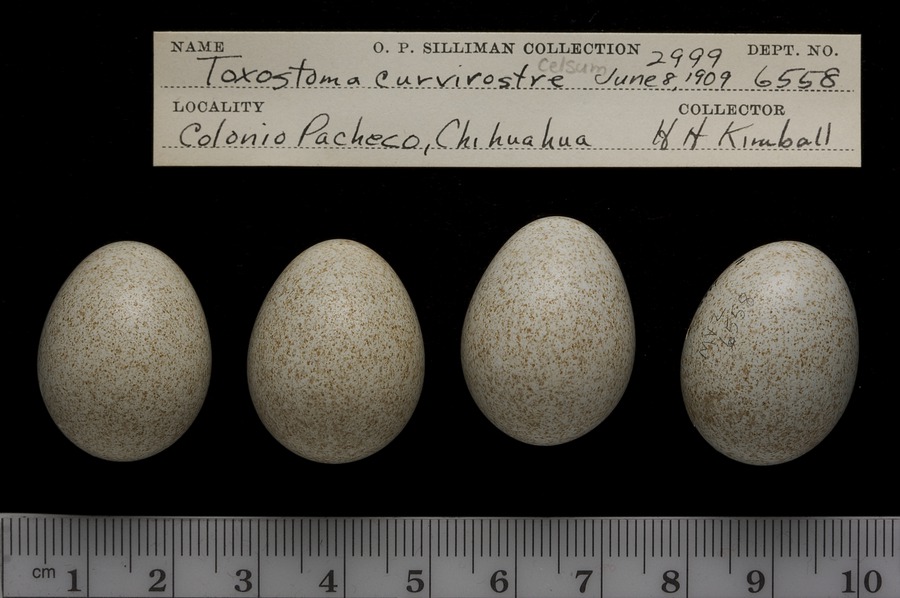 NAME O. P. SILLIMAN COLLECTION 2999 DEPT. NO.
Toxostoma curvirostre celsum June 8, 1909 6558
LOCALITY COLLECTOR
Colonio Pacheco, Chihuahua H H Kimball
6558
cm 1 2 3 4 5 6 7 8 9 10